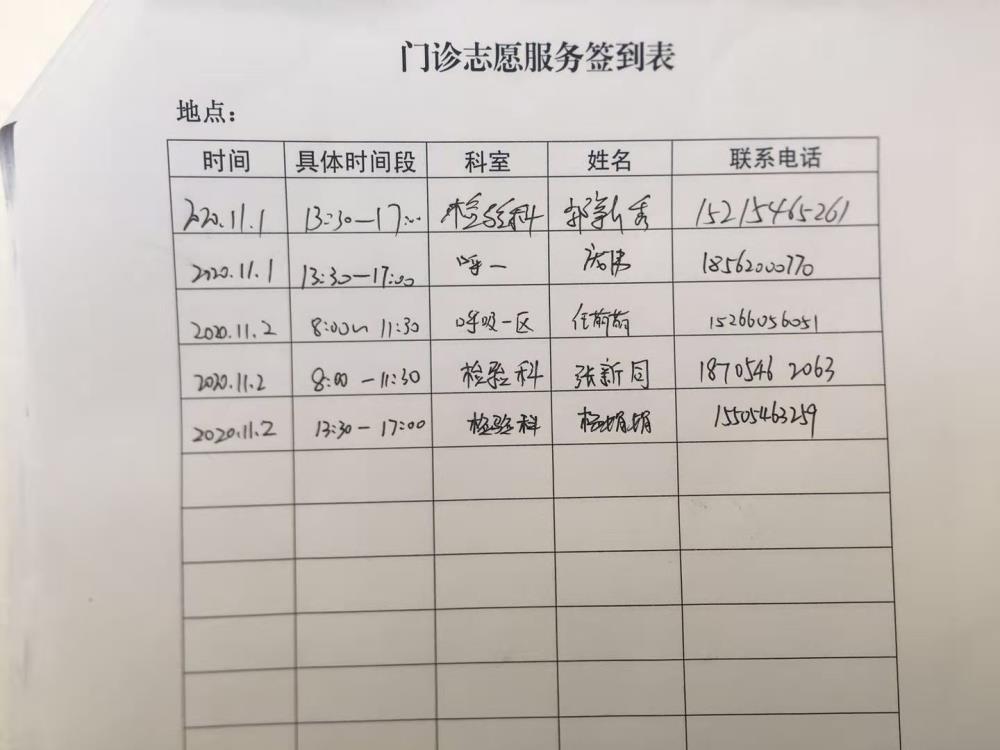 门诊志愿服务签到表
地点：
时间 具体时间段 科室 姓名 联系电话
2020.11.1 13:30—17:00 检验科 15215465261
2020.11.1 13:30—17:00 呼一 18562000770
2020.11.2 8:00~11:30 呼吸一区 任萌萌 15266056051
2020.11.2 8:00—11:30 检验科 张新同 18705462063
2020.11.2 13:30—17:00 检验科 杨娟娟 15505463259